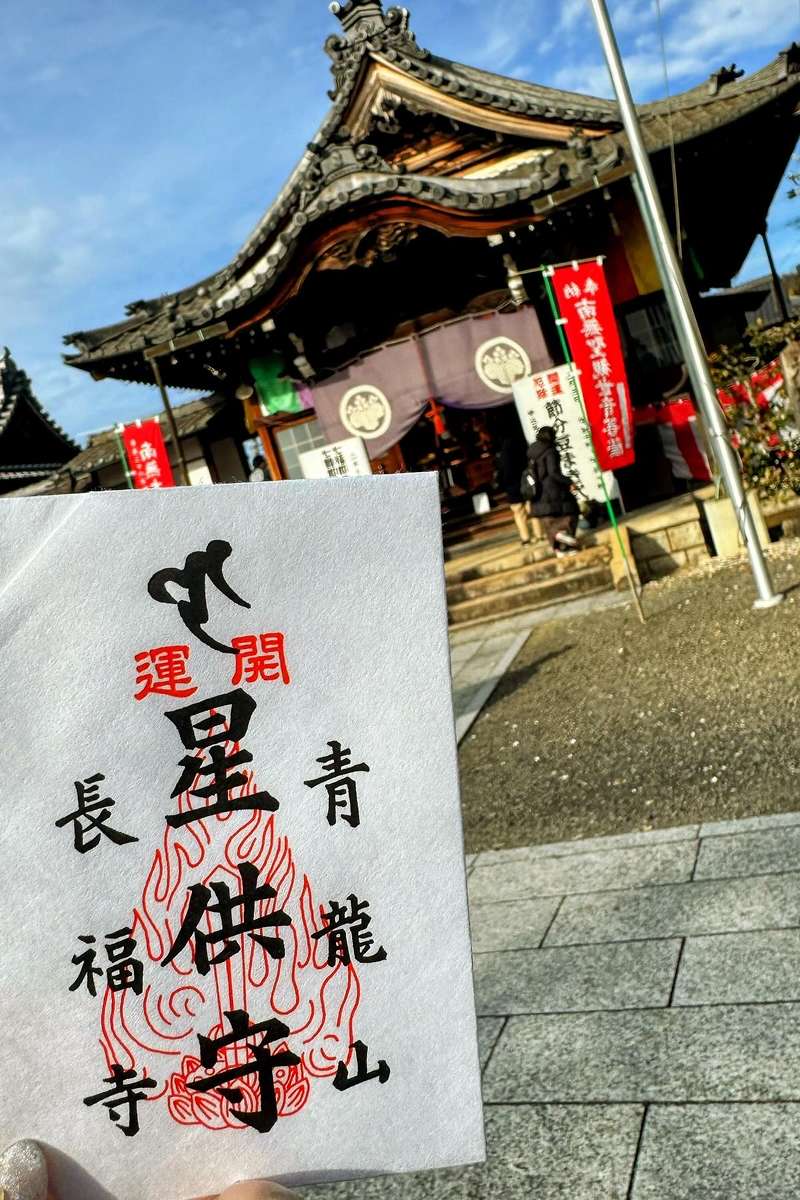 開運
星供守
青龍山
長福寺
奉納 南無聖観世音菩薩
節分豆まき
南無